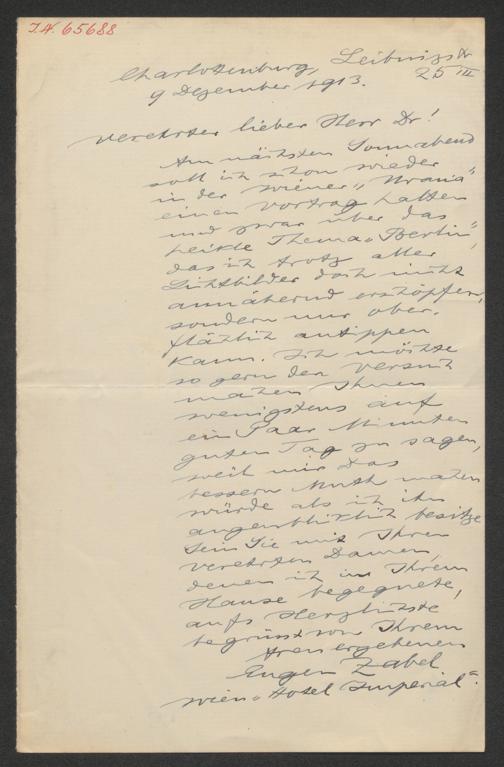 I.N. 65688
Charlottenburg, Leibnizstr
25 III
9 Dezember 1913.
Verehrter lieber Herr Dr!
Am nächsten Sonnabend
soll ich schon wieder
in der Wiener „Urania"
einen Vortrag halten
und zwar über das
heikle Thema „Berlin",
das ich trotz aller
Lichtbilder doch nicht
annähernd erschöpfen,
sondern nur ober-
flächlich antippen
kann. Ich möchte
so gern den Versuch
machen Ihnen
wenigstens auf
ein Paar Minuten
guten Tag zu sagen,
weil mir das
bessern Muth machen
würde als ich ihn
augenblicklich besitze
Sein Sie mit Ihren
verehrten Damen,
denen ich in Ihrem
Hause begegnete,
aufs Herzlichste
begrüsst von Ihrem
treu ergebenen
Eugen Zabel
Wien „Hotel Imperial".